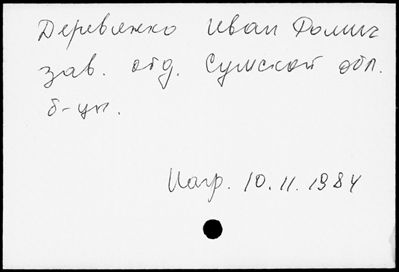 Деревянко Иван Фомич
зав. отд. Сумской обл.
б-цы.
Нагр. 10.11.1984